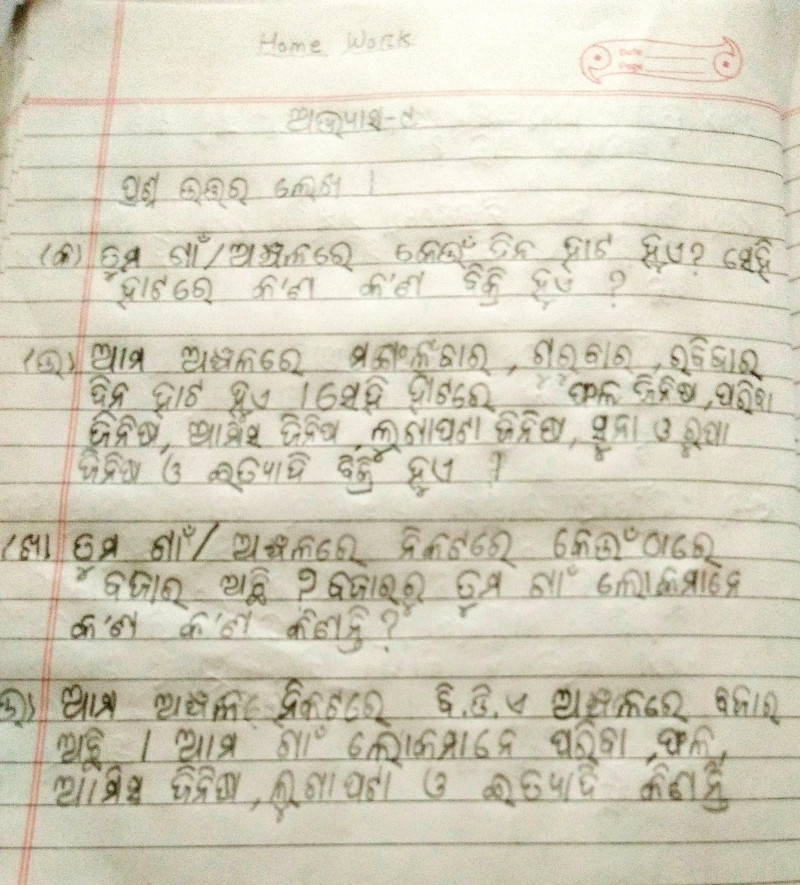 Home Work
Date
Page
ଅଭ୍ୟାସ-୯
ପ୍ରଶ୍ନ ଉତ୍ତର ଲେଖ ।
(କ) ତୁମ ଗାଁ/ଅଞ୍ଚଳରେ କେଉଁ ଦିନ ହାଟ ହୁଏ? ସେହି
ହାଟରେ କ'ଣ କ'ଣ ବିକ୍ରି ହୁଏ ?
(ଉ) ଆମ ଅଞ୍ଚଳରେ ମଙ୍ଗଂଳବାର, ଗୁରୁବାର, ରବିବାର
ଦିନ ହାଟ ହୁଏ । ସେହି ହାଟରେ ଫଳ ଜିନିଷ, ପରିବା
ଜିନିଷ, ଆମିଁସ ଜିନିଷ, ଲୁଗାପଟା ଜିନିଷ, ସୁନା ଓ ରୁପା
ଜିନିଷ ଓ ଇତ୍ୟାଦି ବିକ୍ରି ହୁଏ ।
(ଖ) ତୁମ ଗାଁ/ ଅଞ୍ଚଳରେ ନିକଟରେ କେଉଁଠାରେ
ବଜାର ଅଛି ? ବଜାରରୁ ତୁମ ଗାଁ ଲୋକମାନେ
କ'ଣ କ'ଣ କିଣନ୍ତି ?
ଉ) ଆମ ଅଞ୍ଚଳ ନିକଟରେ ବି.ଡି.ଏ ଅଞ୍ଚଳରେ ବଜାର
ଅଛି । ଆମ ଗାଁ ଲୋକମାନେ ପରିବା, ଫଳ,
ଆମିଷ ଜିନିଷ, ଲୁଗାପଟା ଓ ଇତ୍ୟାଦି କିଣନ୍ତି